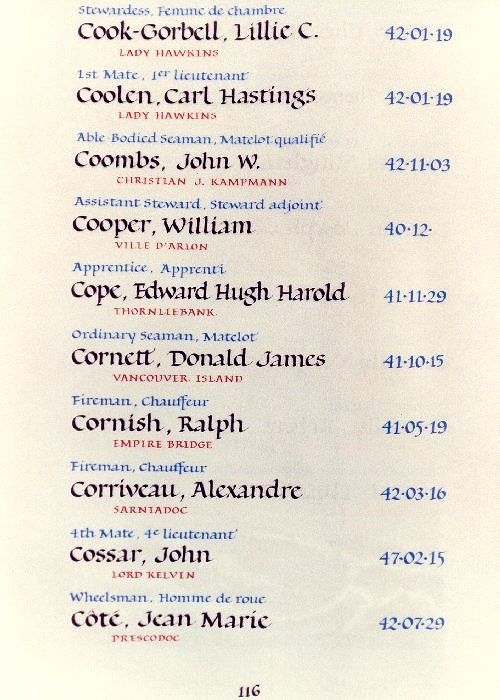 Stewardess, Femme de chambre
Cook-Gorbell, Lillie C. 42·01·19
LADY HAWKINS
1st Mate, 1er lieutenant
Coolen, Carl Hastings 42·01·19
LADY HAWKINS
Able-Bodied Seaman, Matelot qualifié
Coombs, John W. 42·11·03
CHRISTIAN J. KAMPMANN
Assistant Steward, Steward adjoint
Cooper, William 40·12·
VILLE D'ARLON
Apprentice, Apprenti
Cope, Edward Hugh Harold 41·11·29
THORNLIEBANK
Ordinary Seaman, Matelot
Cornett, Donald James 41·10·15
VANCOUVER ISLAND
Fireman, Chauffeur
Cornish, Ralph 41·05·19
EMPIRE BRIDGE
Fireman, Chauffeur
Corriveau, Alexandre 42·03·16
SARNIADOC
4th Mate, 4e lieutenant
Cossar, John 47·02·15
LORD KELVIN
Wheelsman, Homme de roue
Côté, Jean Marie 42·07·29
PRESCODOC
116